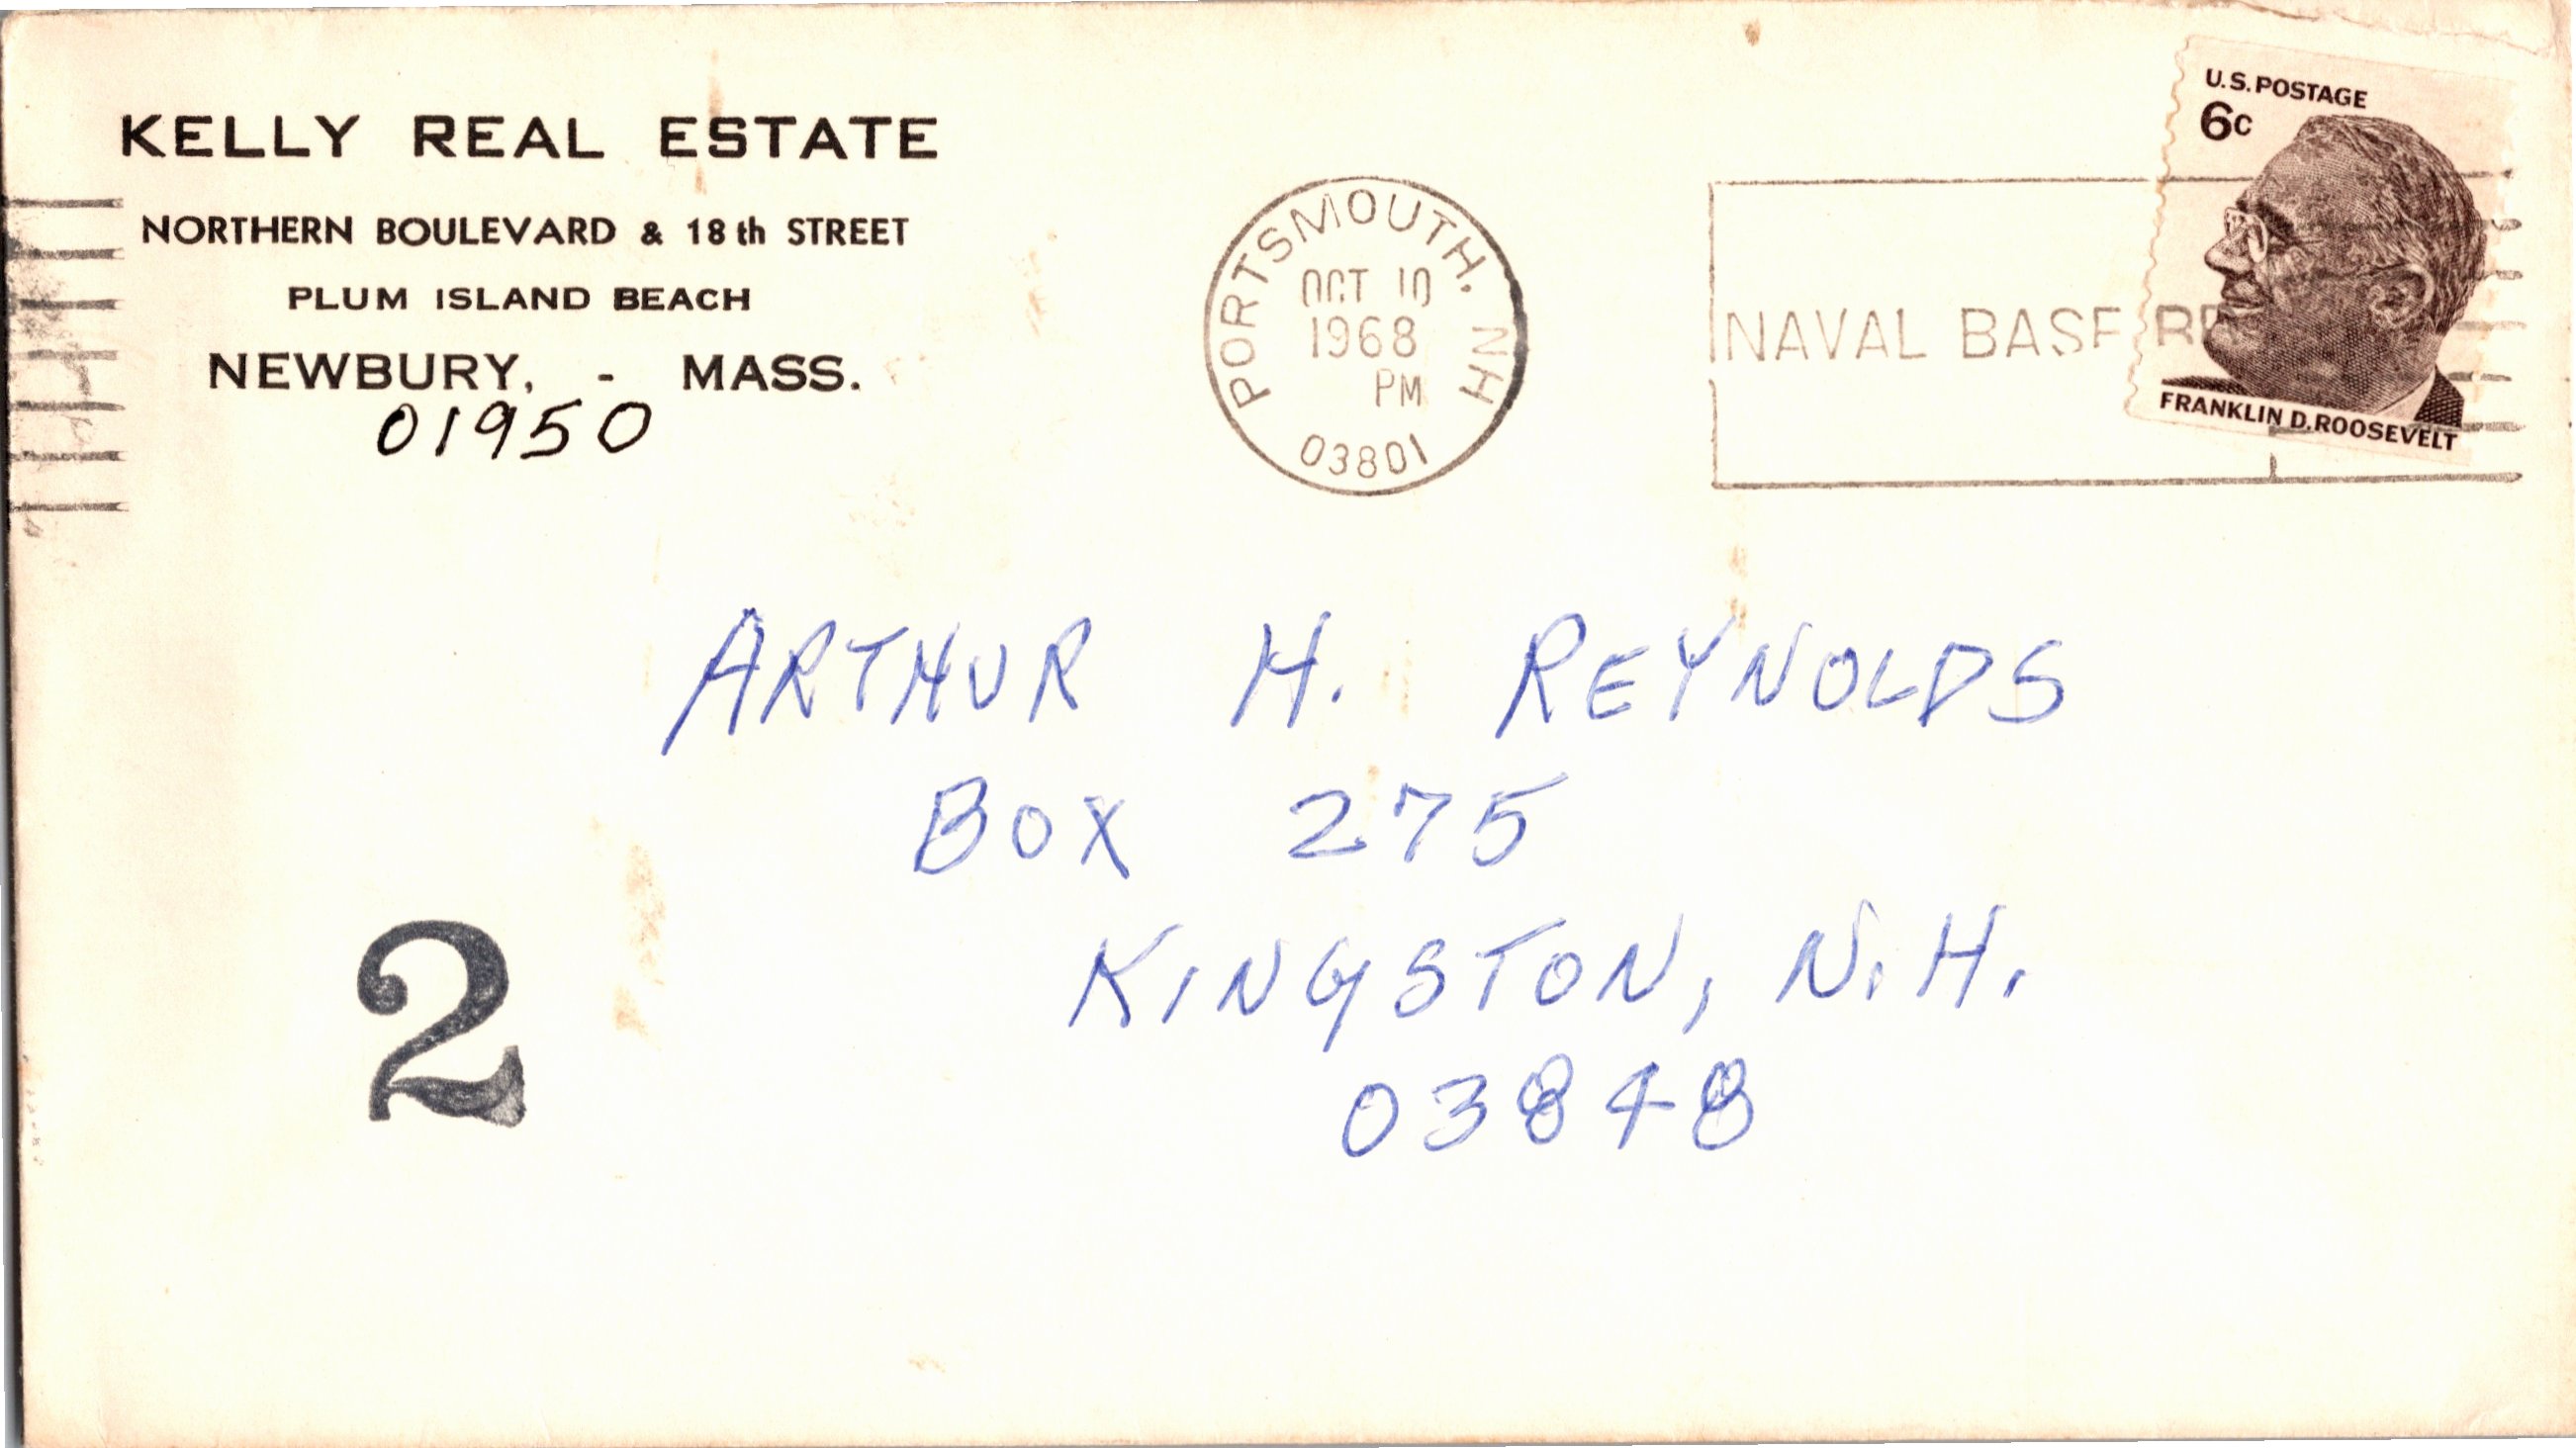 KELLY REAL ESTATE
NORTHERN BOULEVARD & 18th STREET
PLUM ISLAND BEACH
NEWBURY, - MASS.
01950
PORTSMOUTH, NH
OCT 10
1968
PM
03801
NAVAL BASE
U.S. POSTAGE
6c
FRANKLIN D. ROOSEVELT
ARTHUR H. REYNOLDS
BOX 275
KINGSTON, N.H.
03848
2